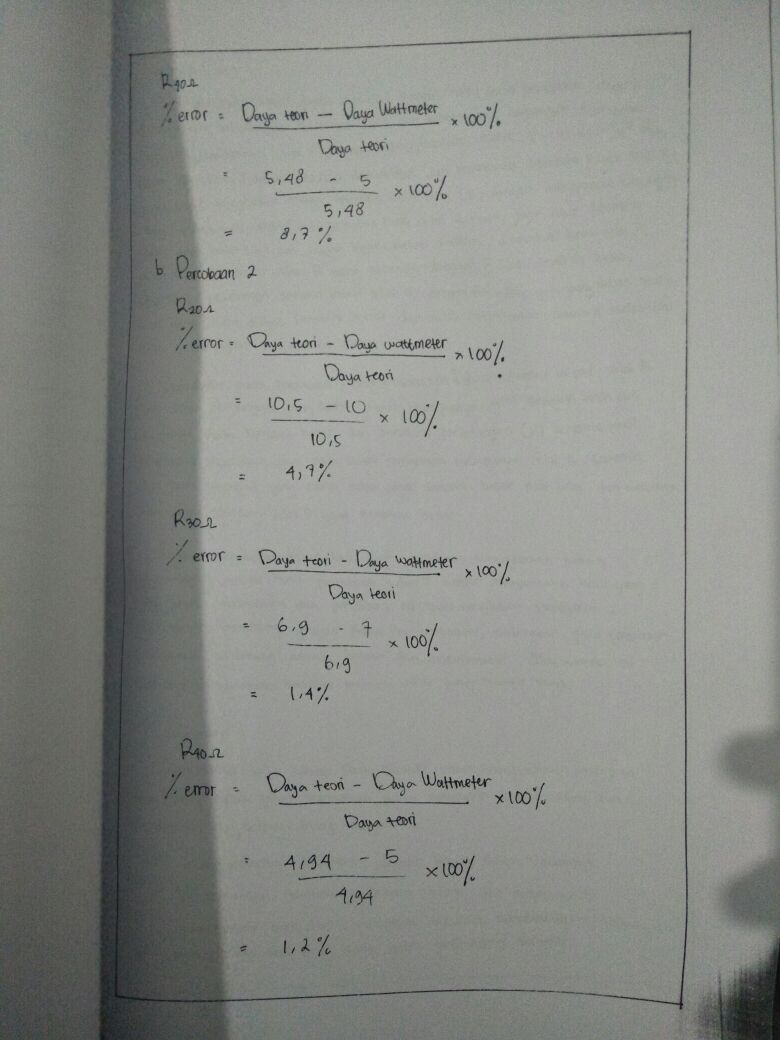 R40Ω
% error = Daya teori — Daya Wattmeter × 100%
Daya teori
= 5,48 - 5 × 100%
5,48
= 8,7 %
b. Percobaan 2
R20Ω
% error = Daya teori - Daya wattmeter × 100%
Daya teori
= 10,5 - 10 × 100%
10,5
= 4,7%
R30Ω
% error = Daya teori - Daya wattmeter × 100%
Daya teori
= 6,9 - 7 × 100%
6,9
= 1,4%
R40Ω
% error = Daya teori - Daya Wattmeter × 100%
Daya teori
= 4,94 - 5 × 100%
4,94
= 1,2%